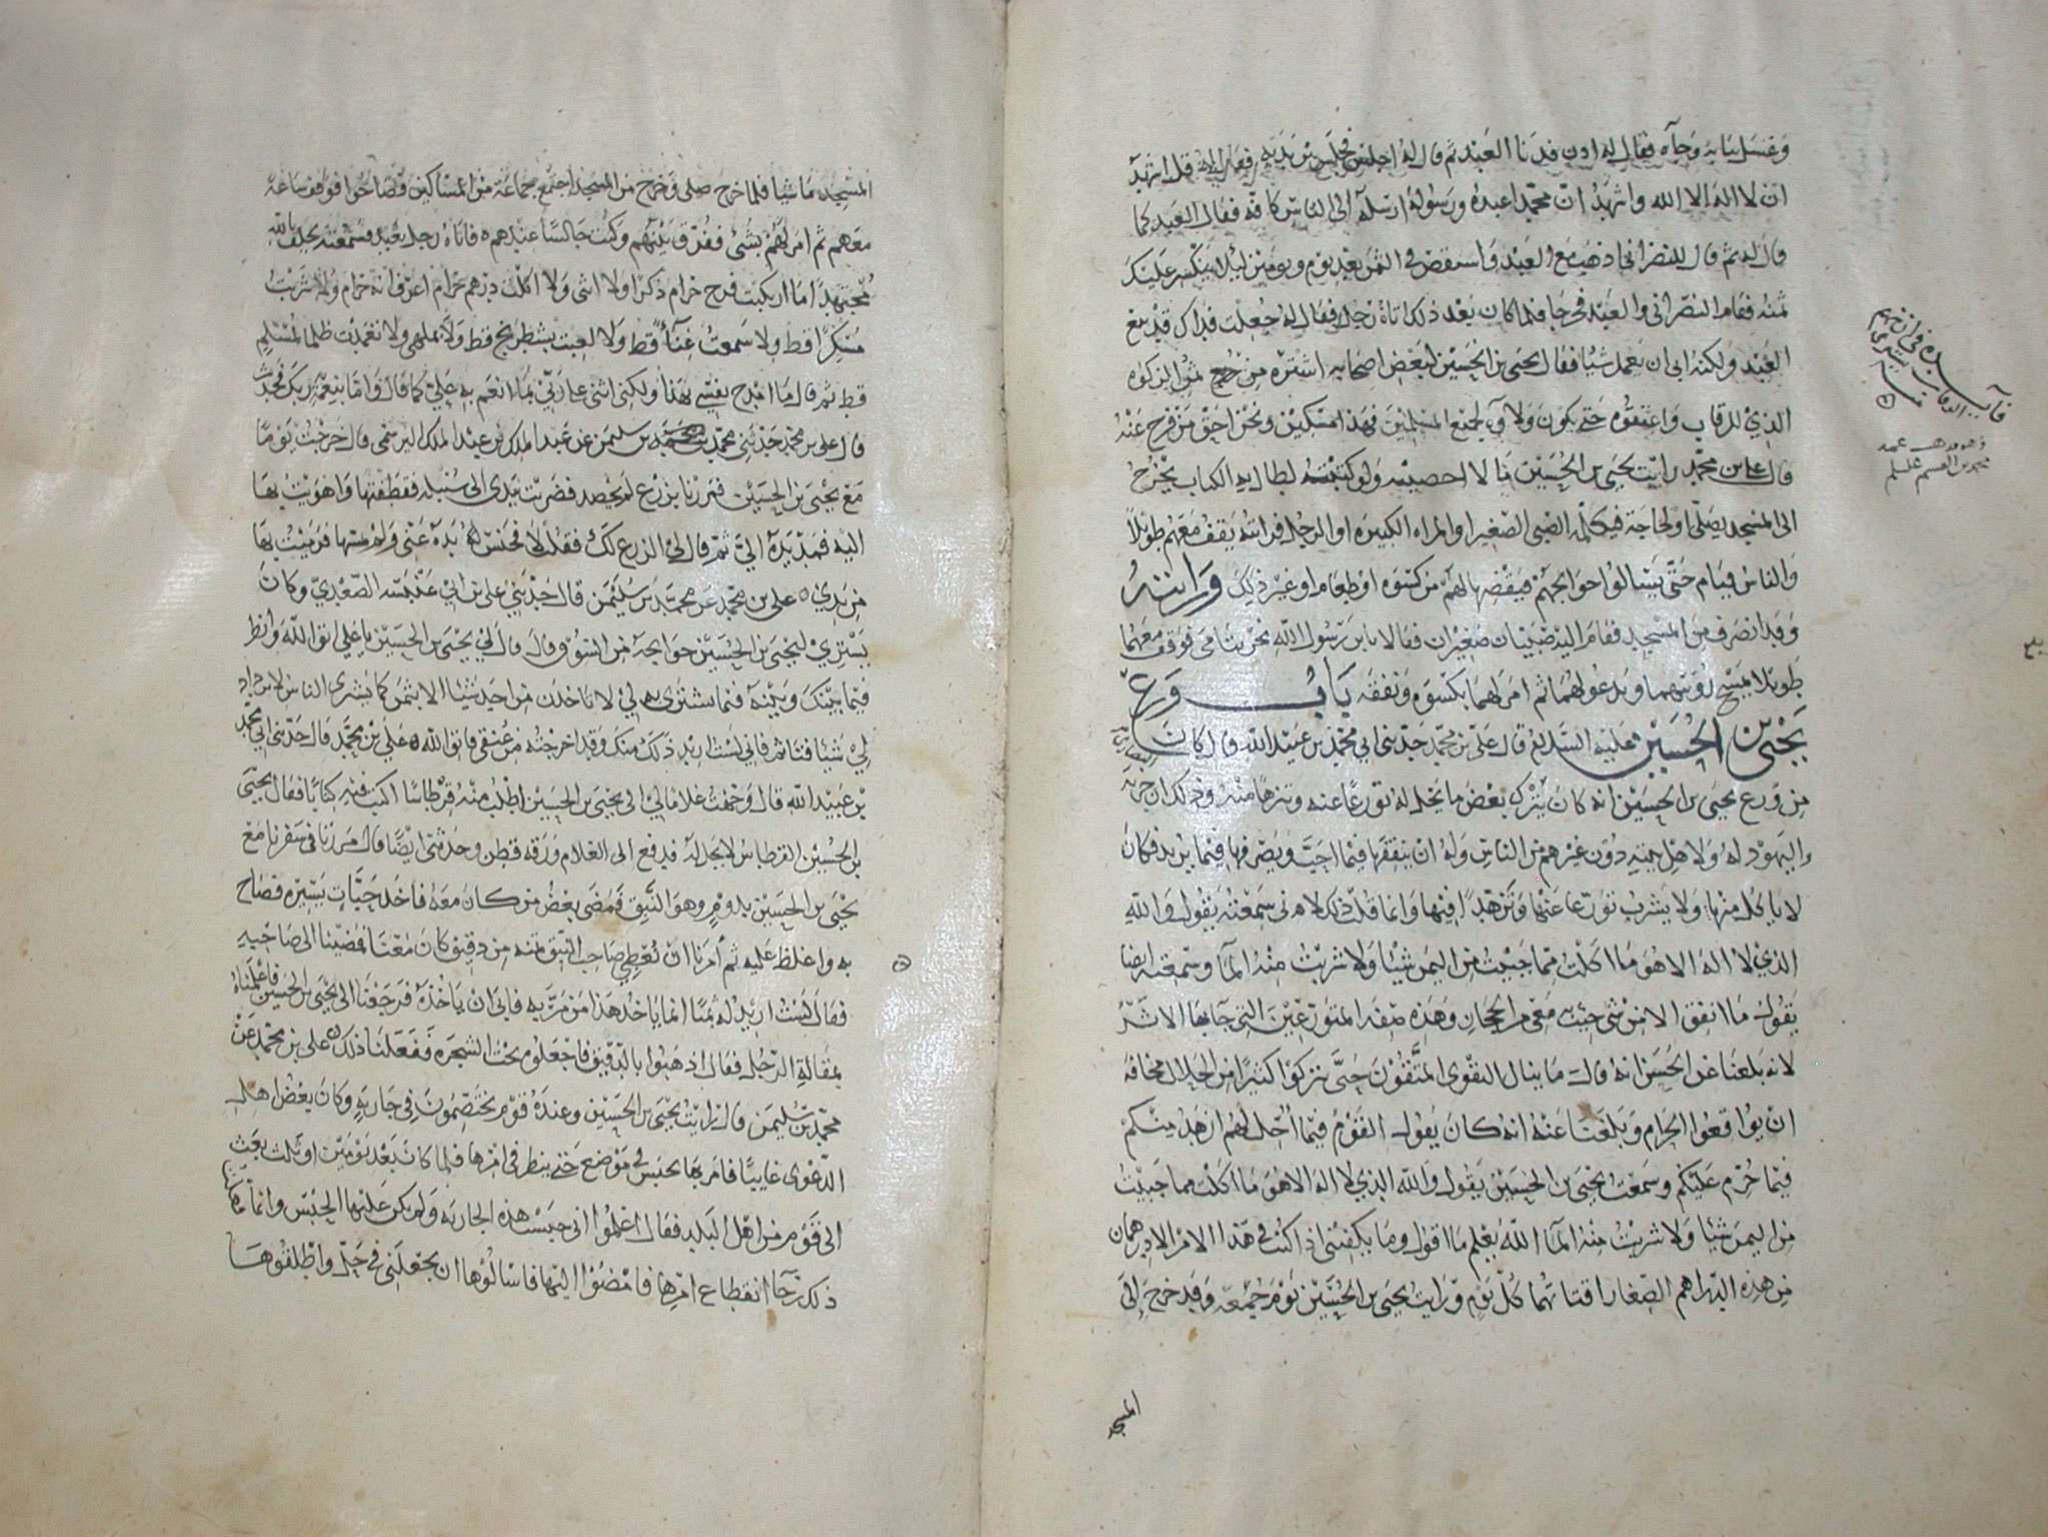 وغسل ثيابه وجاه فقال له ادن فدنا العبد ثم قال له اجلس فجلس بين يديه فقال له قل اشهد
ان لا اله الا الله واشهد ان محمدا عبده ورسوله ارسله الى الناس كافه فقال العبد كما
قال له ثم قال للنصراني اذهب مع العبد واستقض في الثمن بعد يوم ويومين ليلا ينكسر عليك
ثمنه فقام النصراني والعبد فخرجا فلما كان بعد ذلك اتاه رجل فقال له جعلت فداك قد بيع
العبد ولكنه ابى ان يعمل شيئا فقال يحيى بن الحسين لبعض اصحابه اشتره من جميع الزكوه
الذي للرقاب واعتقوه حتى يكون ولاوه لجميع المسلمين فهذا مسكين ونحن احق من فرج عنه
قال علي بن محمد رايت يحيى بن الحسين ما لا احصيه ولو كتبته لطال به الكتاب يخرج
الى المسجد يصلي او لحاجة فيكلمه الصبي الصغير او المراه الكبيره او الرجل فرايته يقف معهم طويلا
والناس قيام حتى يسالوا حوايجهم فيقضيها لهم من كسوه او طعام او غير ذلك ورايته
وقد انصرف من المسجد فقام اليه صبيان صغيران فقالا يابن رسول الله نحن يتامى فوقف معهما
طويلا يمسح رؤسهما ويدعو لهما ثم امر لهما بكسوه ونفقه باب ورع
يحيى بن الحسين عليه السلام قال علي بن محمد حدثني ابي محمد بن عبيد الله قال كان
من ورع يحيى بن الحسين انه كان يترك بعض ما يحل له تورعا عنه وتنزها منه وذلك ان جزيه
اليهود له ولاهل بيته دون غيرهم من الناس وله ان ينفقها فيما احب ويصرفها فيما يريد فكان
لا ياكل منها ولا يشرب تورعا عنها وتزهدا فيها وانما قلت ذلك لاني سمعته يقول والله
الذي لا اله الا هو ما اكلت مما جبيت من اليمن شيئا ولا شربت منه الماء وسمعته ايضا
يقول ما انفق الا من شي جيت به معي من الحجاز وهذه صفه المتورعين التي جا بها الاثر
لانه بلغنا عن الحسن انه قال ما ينال التقوى المتقون حتى يتركوا كثيرا من الحلال مخافه
ان يواقعوا الحرام وبلغنا عنه انه كان يقول القوم فيما احل لهم ازهد منكم
فيما حرم عليكم وسمعت يحيى بن الحسين يقول والله الذي لا اله الا هو ما اكلت مما جبيت
من اليمن شيئا ولا شربت منه الماء الله يعلم ما اقول وما يكفيني اذا كنت في هذا الامر الا درهمان
من هذه الدراهم الصغار اقتاتهما كل يوم ورايت يحيى بن الحسين يوم جمعه وقد خرج الى
المسجد
المسجد ماشيا فلما خرج صلى وخرج من المسجد اجتمع جماعة من المساكين فصاحوا فوقف ساعة
معهم ثم امر لهم بشئ ففرق بينهم وكنت جالسا عندهم فاتاه رجل بعبد فسمعته يحلف بالله
مجتهدا ما اركبت فرج حرام ذكرا ولا انثى ولا اكلت درهم حرام اعرف انه حرام ولا شربت
مسكرا قط ولا سمعت غناء قط ولا لعبت بشطرنج قط ولا بملهى ولا تعمدت ظلما لمسلم
قط ثم قال ما امدح نفسي بهذا ولكني اثني على ربي بما انعم به علي كما قال واما بنعمة ربك فحدث
قال علي بن محمد حدثني محمد بن سليمن عن عبد الملك بن عبد الملك البرسمي قال خرجت يوما
مع يحيى بن الحسين فمررنا بزرع لم يحصد فضربت بيدي الى سنبله فقطعتها واهويت بها
اليه فمد يده الي ثم قال لي الزرع لك فقلت لا فحبس يده عني ولم يمسها فرميت بها
من يدي علي بن محمد عن محمد بن سليمن قال حدثني علي بن ابي عنبسه الصعدي وكان
يشتري ليحيى بن الحسين حوايجه من السوق قال قال لي يحيى بن الحسين يا علي اتق الله وانظر
فيما بينك وبينه فيما تشتري لي لا تاخذن من احد شيئا الا بثمن كما يشري الناس لا تزداد
لي شيئا فتاثم فاني لست اريد ذلك منك وقد اخرجته من عنقي فاتق الله علي بن محمد قال حدثني ابي محمد
بن عبيد الله قال وجهت غلاما لي الى يحيى بن الحسين اطلب منه قرطاسا اكتب فيه كتابا فقال يحيى
بن الحسين القرطاس لا يحل له فدفع الى الغلام ورقه قطن وحدثني ايضا قال مررنا في سفرنا مع
يحيى بن الحسين بدوم وهو النبق فمضى بعض من كان معه فاخذ حبات يسيره فصاح
به واغلظ عليه ثم امرنا ان نعطي صاحب النبق ثمنه من دقيق كان معنا فمضينا الى صاحبه
فقال لست اريد له ثمنا انما ياخذ هذا من مر به فابى ان ياخذه فرجعنا الى يحيى بن الحسين فاعلمناه
بمقالة الرجل فقال اذهبوا بالدقيق فاجعلوه تحت الشجره ففعلنا ذلك علي بن محمد عن
محمد بن سليمن قال رايت يحيى بن الحسين وعنده قوم يختصمون في جاريه وكان بعض اهل
الدعوى غايبا فامر بها تحبس في موضع حتى ينظر في امرها فلما كان بعد يومين او ثلث بعث
الى قوم من اهل البلد فقال اعلموا اني حبست هذه الجاريه ولم يكن عليها الحبس وانما
ذلك رجا انقطاع امرها فامضوا اليها فاسالوها ان تجعلني في حل واطلقوها